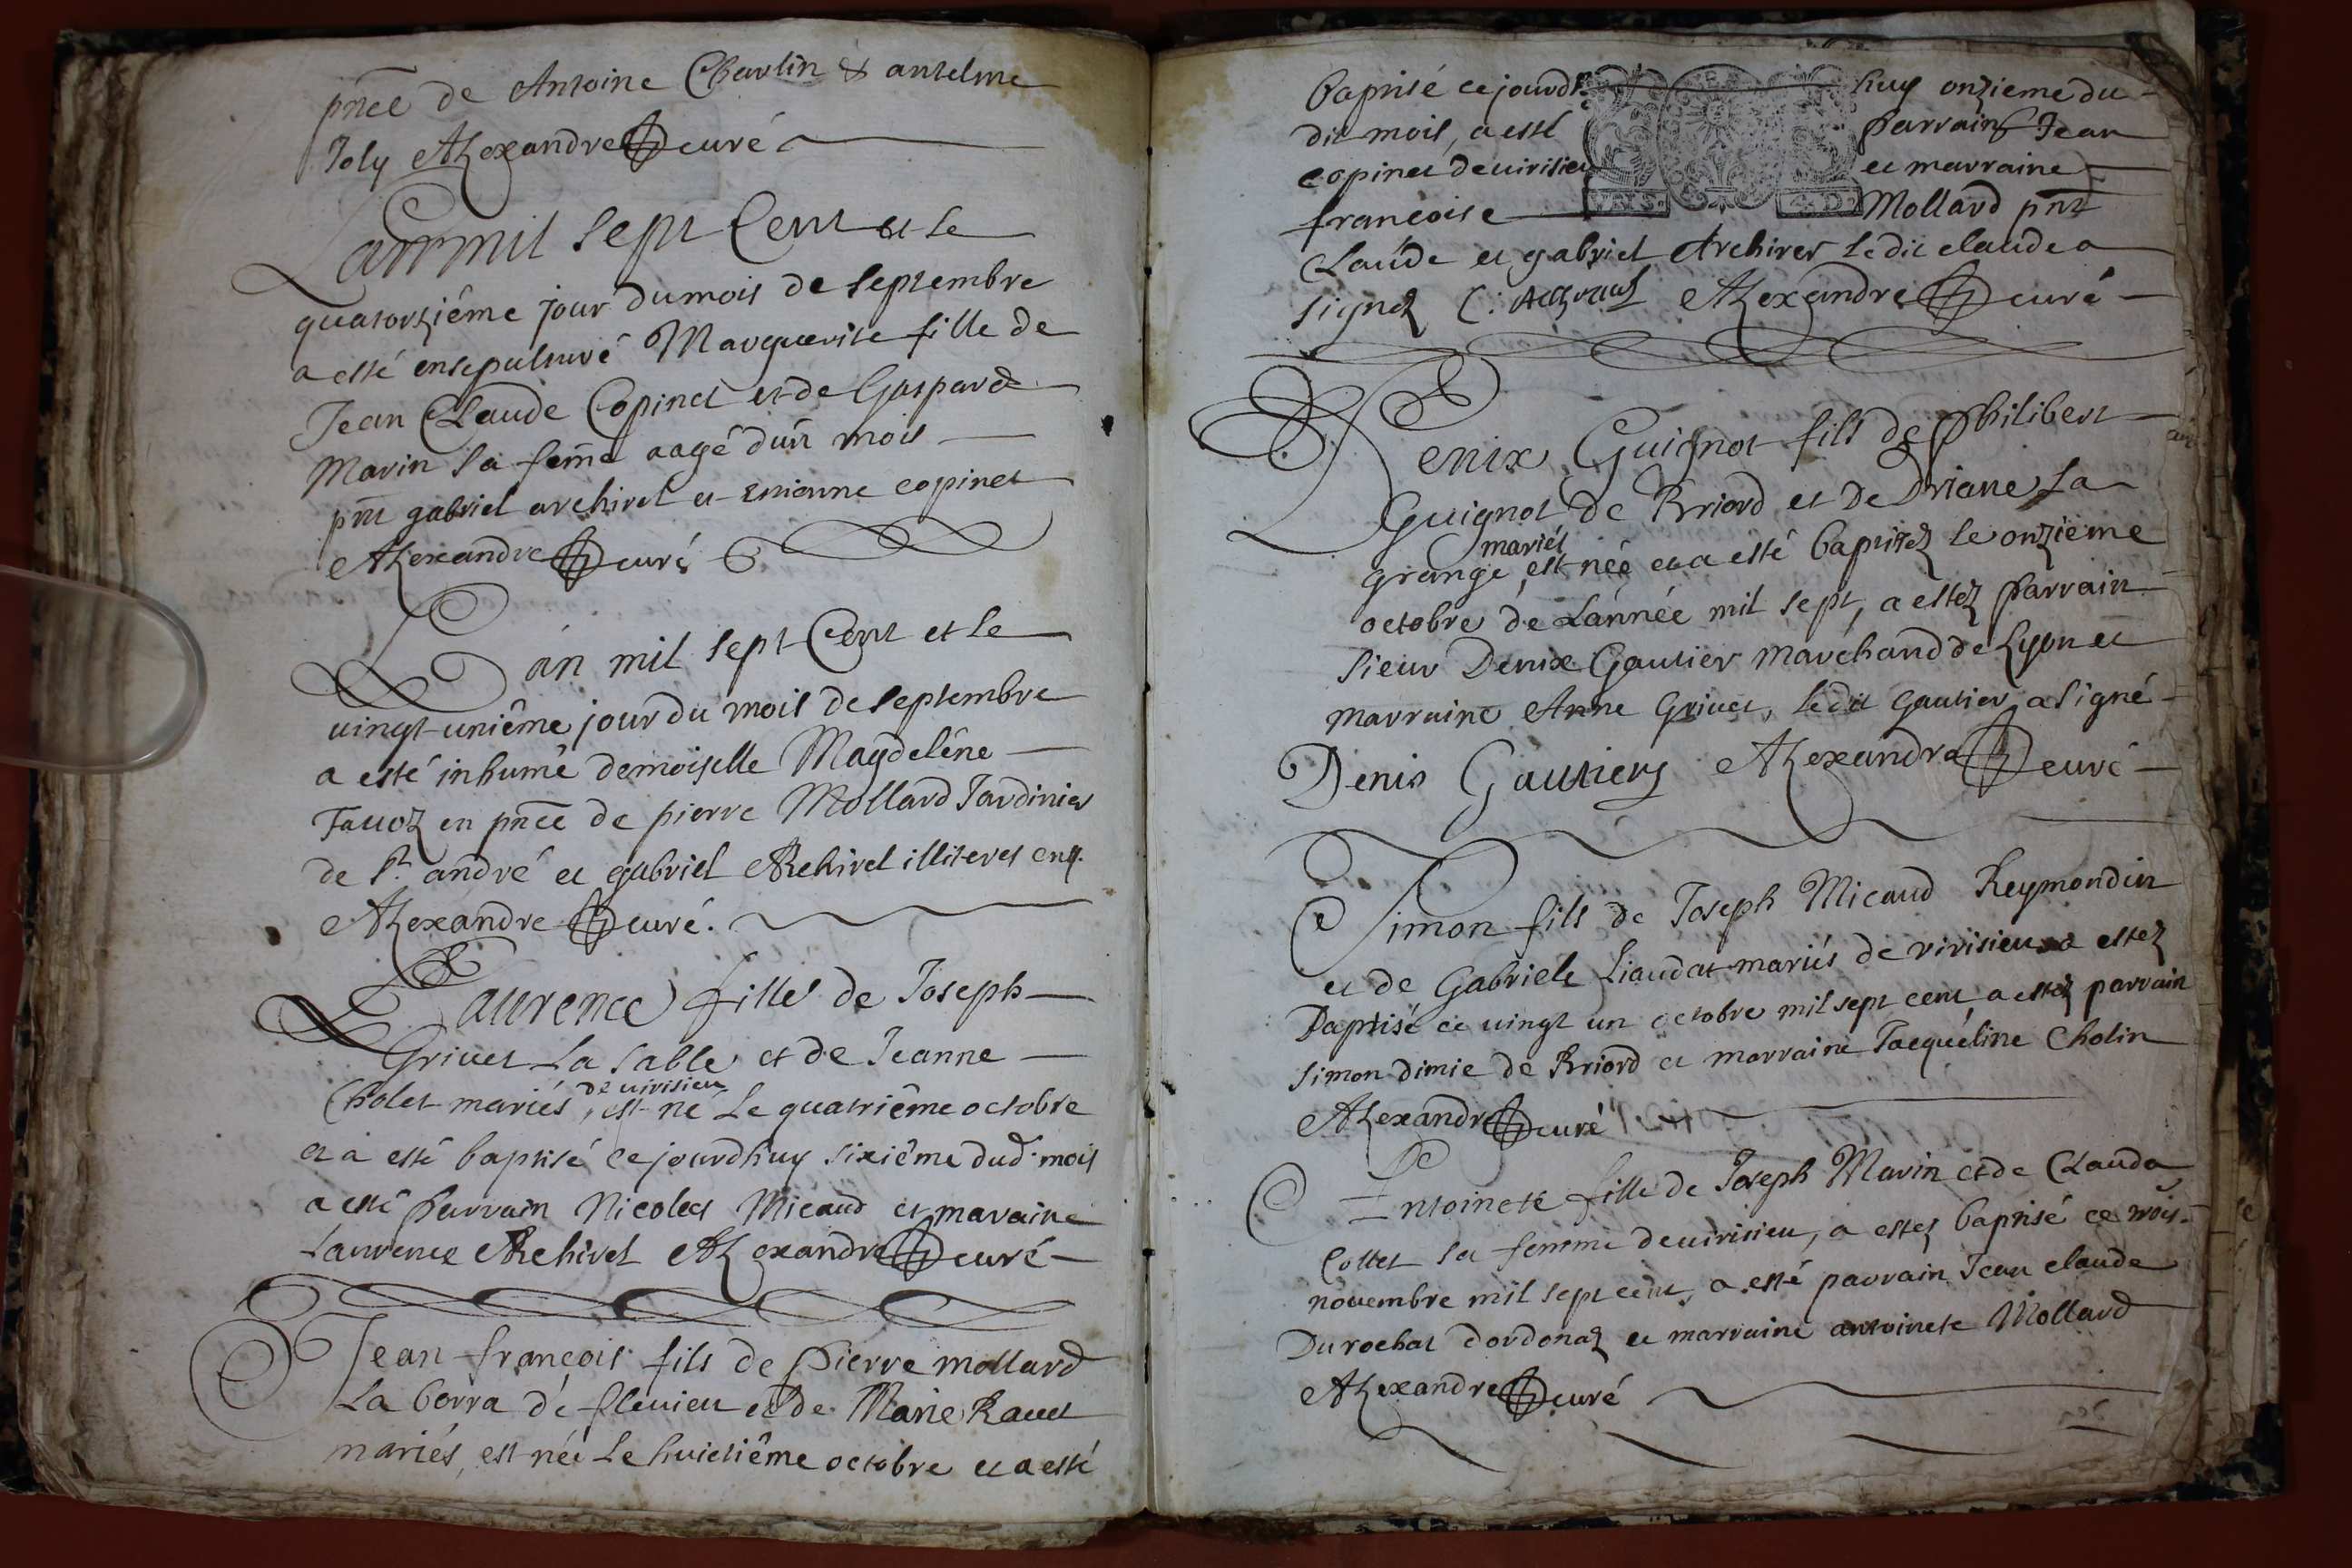 pñce de Antoine Charlin & antelme
Joly Alexandre curé
Lan mil sept Cent et le
quatorziême jour du mois de septembre
a esté ensepulturé Marguerite fille de
Jean Claude Copinet et de Gasparde
Marin sa fem̃e aagé dun mois
pñt gabriel archiret et enienne copinet
Alexandre curé
Lán mil sept Cent et le
uingt-uniême jour du mois de septembre
a esté inhumé demoiselle Magdeléne
Fauoz en pñce de pierre Mollard Jardinier
de St. andré et gabriel Archiret illiteres enq.
Alexandre curé.
Laurence fille de Joseph
Griuet La Salle et de Jeanne
de uirisieu
Cholet mariés, est né Le quatriême octobre
et a esté baptisé ce jourdhuy sixiême dud. mois
a esté parrain Nicolas Micaud et maraine
Laurence Archiret Alexandre curé
Jean françois fils de Pierre mollard
La borra de fleuieu et de Marie Rauet
mariés, est née Le huictiême octobre et a esté
baptisé ce jourdhuy onzieme du
dit mois, a esté parrain Jean
copinet de uirisieu et marraine
francoise Mollard pñt
Claude et gabriel Archiret Ledit claude a
signez C: Alexandre curé
4.D.
Denix Guignot fils de Philibert
Guignot de Briord et De Driane La
mariés
grange est née et a esté baptisez le onzième
octobre de Lánnée mil sept, a estez parrain
sieur Denix Gautier marchand de Lyon et
marraine Anne Griuet, ledit gautier a signé
Denis Gautiery Alexandre curé
Simon fils de Joseph Micaud Reymondin
et de Gabriele Liaudat mariés de virisieu a estez
Baptisé ce uingt un octobre mil sept cent a estez parrain
simon dimie de Briord et marraine Jacquéline Cholin
Alexandre curé
Antoinete fille de Joseph Marin et de Clauda
Cottet sa femme de uirisieu, a estez baptisé ce trois.
nouembre mil sept cent, a esté parrain Jean claude
Durochat dordonaz et marraine antoinete Mollard
Alexandre curé